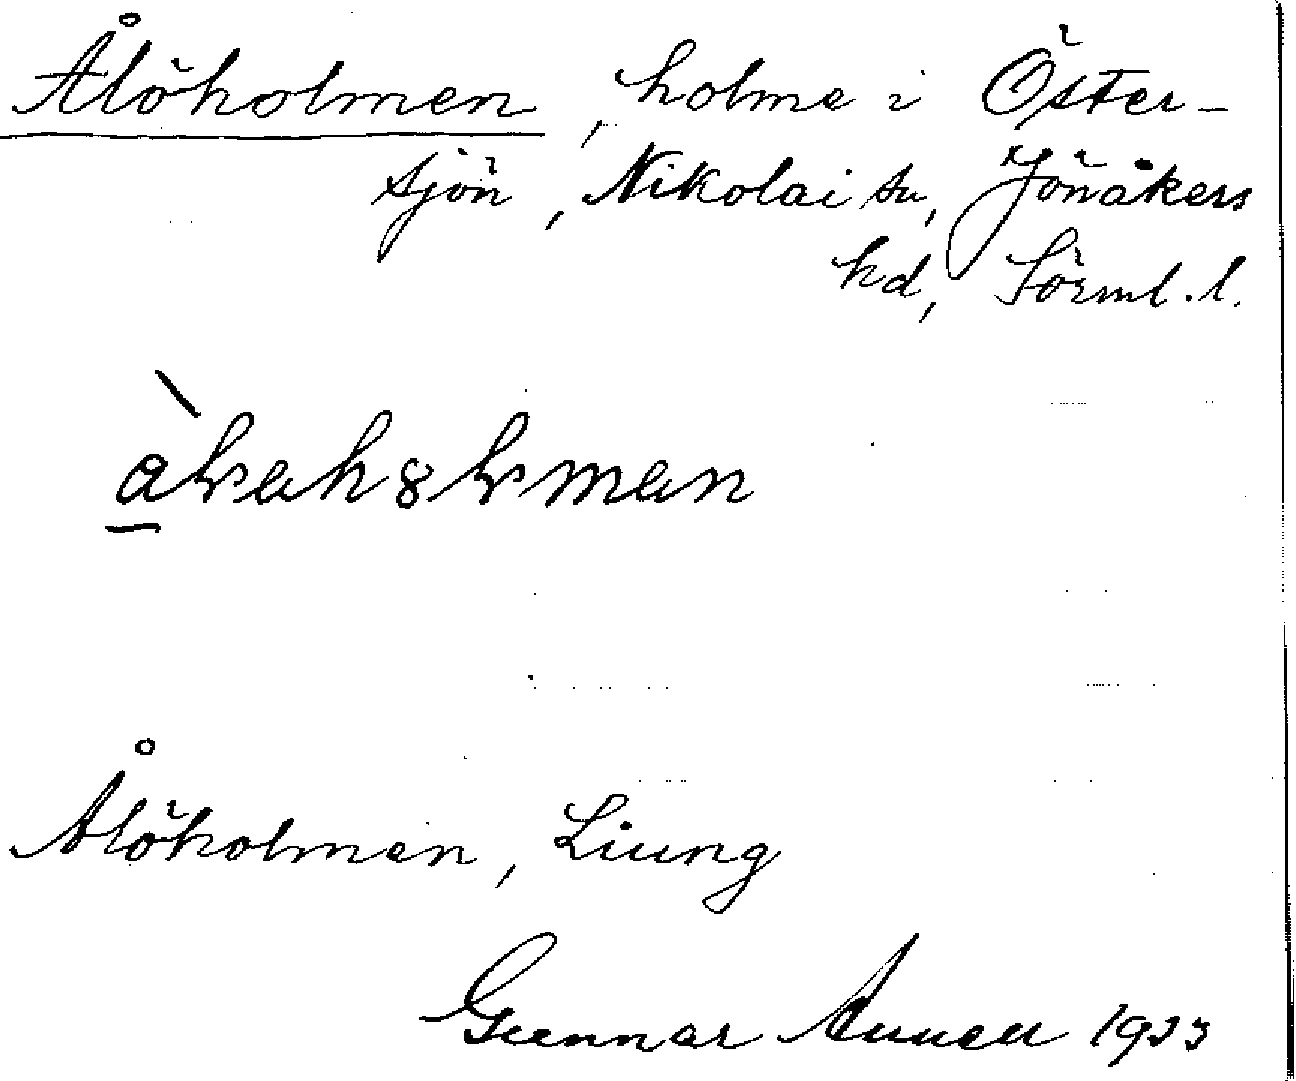 Ålöholmen, holme i Öster-
sjön, Nikolai sn, Jönåkers
hd, Sörml. l.
Ålöholmen, Liung
Gunnar 1933